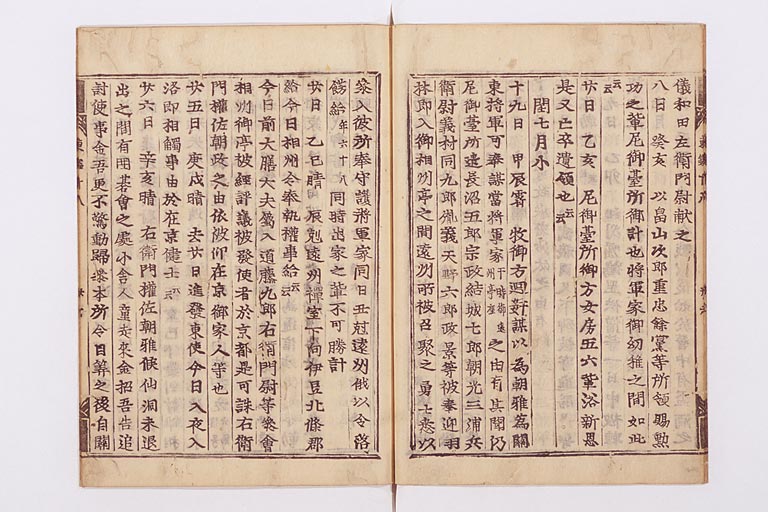 儀和田左衛門尉献之
八日 癸亥 以畠山次郎重忠餘黨等所領賜勲
功之輩尼御臺所御計也將軍家御幼稚之間如此云云
廿日 乙亥 尼御臺所御方女房五六輩浴新恩
是又亡卒遺領也云云
閏七月小
十九日 甲辰霽 牧御方廻奸謀以為朝雅為關
東將軍可奉謀當將軍家于時御座遠州亭之由有其聞仍
尼御臺所遣長沼五郎宗政結城七郎朝光三浦兵
衛尉義村同九郎胤義天野六郎政景等被奉迎羽
林即入御相州亭之間遠州所被召聚之勇士悉以
参入彼所奉守護將軍家同日丑尅遠州俄以令落
餝給年六十八同時出家之輩不可勝計
廿日 乙巳晴 辰尅遠州禪室下向伊豆北條郡
給今日相州令奉執權事給云云
今日前大膳大夫屬入道藤九郎右衛門尉等參會
相州御亭被經評議被發使者於京都是可誅右衛
門權佐朝政之由依被仰在京御家人等也
廿五日 庚戌晴 去廿日進發東使今日入夜入
洛即相觸事由於在京健士云云
廿六日 辛亥晴 右衛門權佐朝雅候仙洞未退
出之間有囲碁會之處小舎人童走来金招吾告追
討使事金吾更不驚動歸參本所令目算之後自關